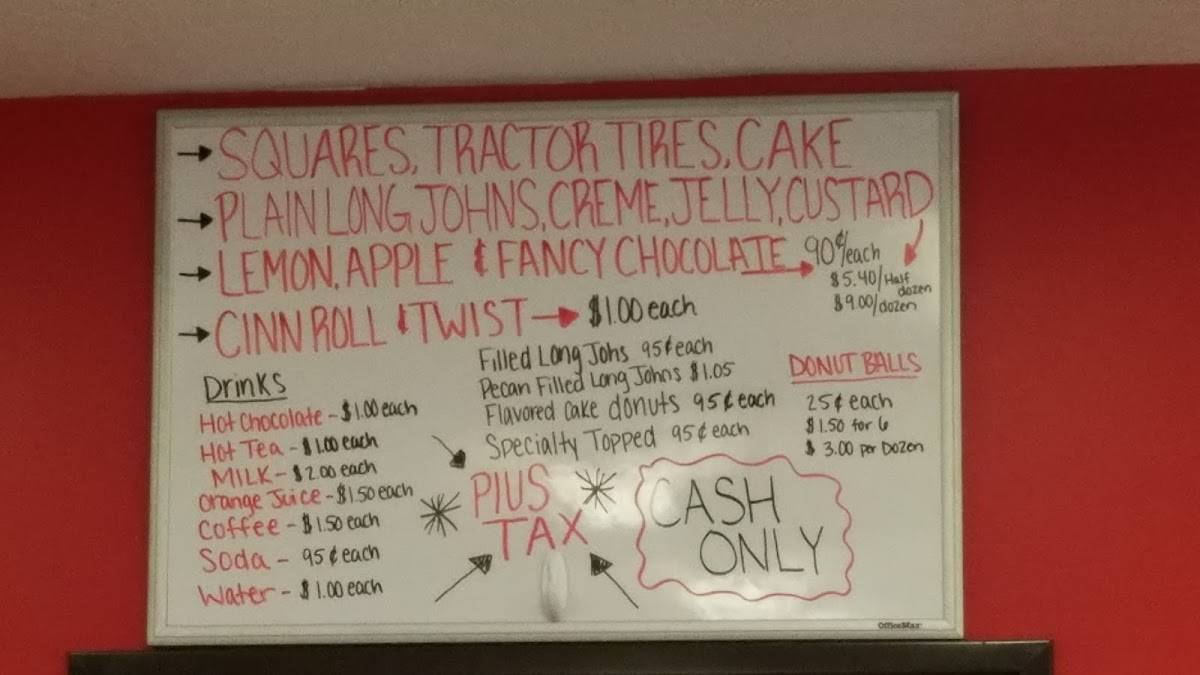 → SQUARES, TRACTOR TIRES, CAKE
→ PLAIN LONG JOHNS, CREME, JELLY, CUSTARD
→ LEMON, APPLE & FANCY CHOCOLATE → 90¢/each
$5.40/Half dozen
$9.00/dozen
→ CINN ROLL & TWIST → $1.00 each
Filled Long Johs 95¢ each
Pecan Filled Long Johns $1.05
Flavored cake donuts 95¢ each
Specialty Topped 95¢ each
DONUT BALLS
25¢ each
$1.50 for 6
$3.00 per Dozen
Drinks
Hot Chocolate - $1.00 each
Hot Tea - $1.00 each
MILK - $2.00 each
Orange Juice - $1.50 each
Coffee - $1.50 each
Soda - 95¢ each
Water - $1.00 each
PlUS
TAX
CASH
ONLY
OfficeMax